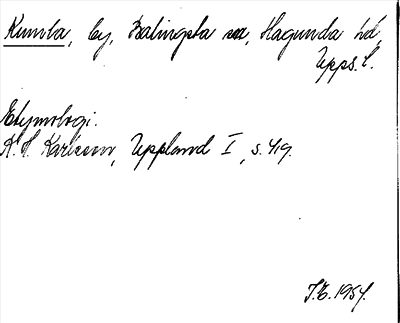 Kumla, by, Balingsta sn, Hagunda hd,
Upps. l.
Etymologi.
K. H. Karlsson, Uppland I, s. 419.
J.E. 1954.